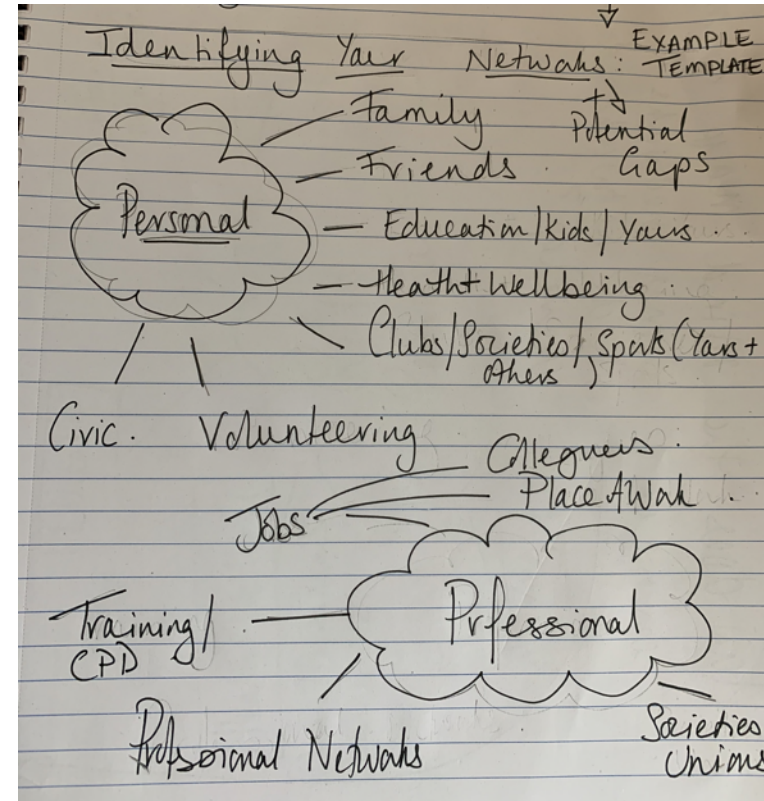 EXAMPLE
Identifying Your Networks: TEMPLATE
+ Potential
Gaps
Family
Friends
Personal
Education/Kids/Yours
Health + Wellbeing
Clubs/Societies/Sports (Yours +
Others)
Civic. Volunteering
Collegues
Place of Work
Jobs
Professional
Training/
CPD
Professional Networks
Societies
Unions